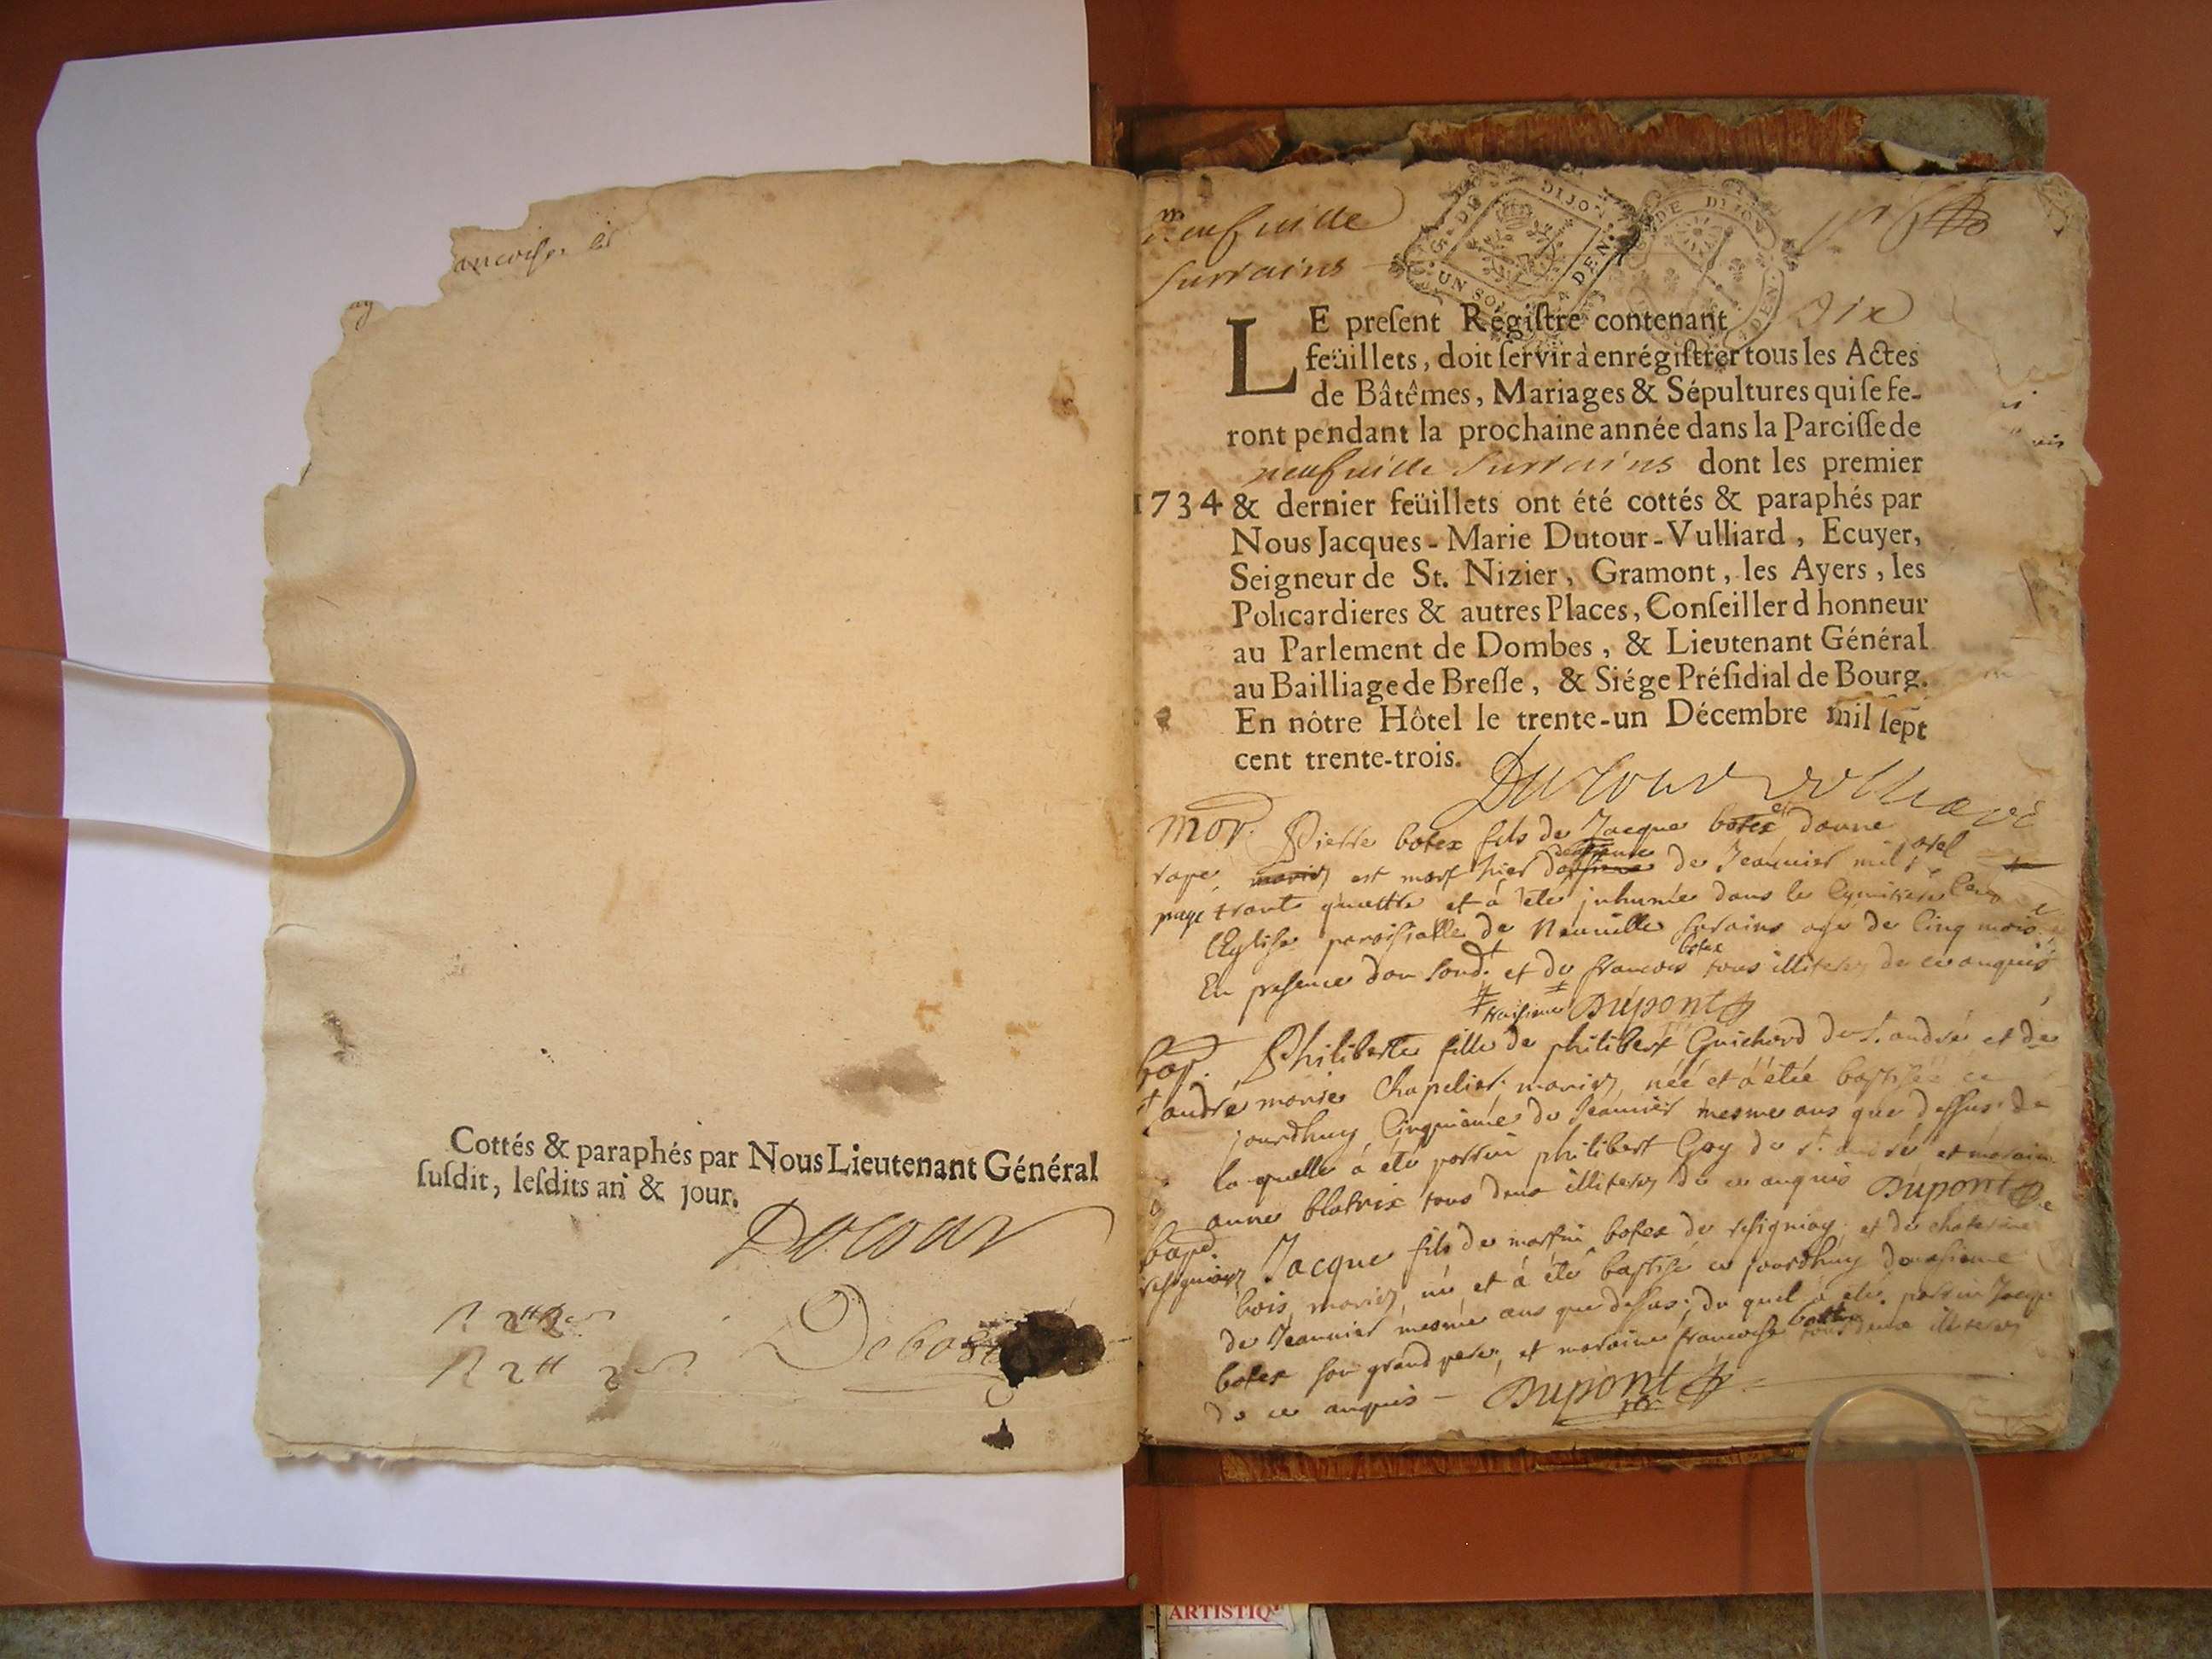 Cottés & paraphés par Nous Lieutenant Général
ſuſdit, leſdits an & jour.
neufuille
surrains
DIJON
UN SOL
DEN.
DE DIJON
DEN
LE preſent Régiſtre contenant Dix
feüillets, doit ſervir à enrégiſtrer tous les Actes
de Bâtêmes, Mariages & Sépultures qui ſe fe-
ront pendant la prochaine année dans la Paroiſſe de
neufuille surrains dont les premier
1734 & dernier feüillets ont été cottés & paraphés par
Nous Jacques-Marie Dutour-Vulliard, Ecuyer,
Seigneur de St. Nizier, Gramont, les Ayers, les
Policardieres & autres Places, Conſeiller d honneur
au Parlement de Dombes, & Lieutenant Général
au Bailliage de Breſſe, & Siége Préſidial de Bourg.
En nôtre Hôtel le trente-un Décembre mil ſept
cent trente-trois.
Dutour Vulliard
mor. Pierre botex fils de Jacque botex
est mort hier de Jeanuier mil
trante quattre et à été inhumé dans le
l'Eglise paroisialle de Neuuille surains agé de Cinq mois
En presence et de francois botex tous illiteres de ce anquis
Dupont
bap. Philiberte fille de philibert Guichard de s. andré et de
marie Chapelier mariez, née et à étée baptisée ce
jourdhuy Cinquiame de Jeanuier mesme ans que dessus de
la quelle à été parrin philibert Goy de st. andré et maraine
anne blatrix tous deux illiteres de ce anquis Dupont
bap. Jacque fils de martin botex de et de chaterine
bois mariez, né et à été baptisé ce jourdhuy douzieme
de Jeanuier mesme ans que dessus; du quel à été parrin Jacque
botex son grand pere, et maraine francoise tous deux illiteres
de ce anquis - Dupont
ARTISTIQ